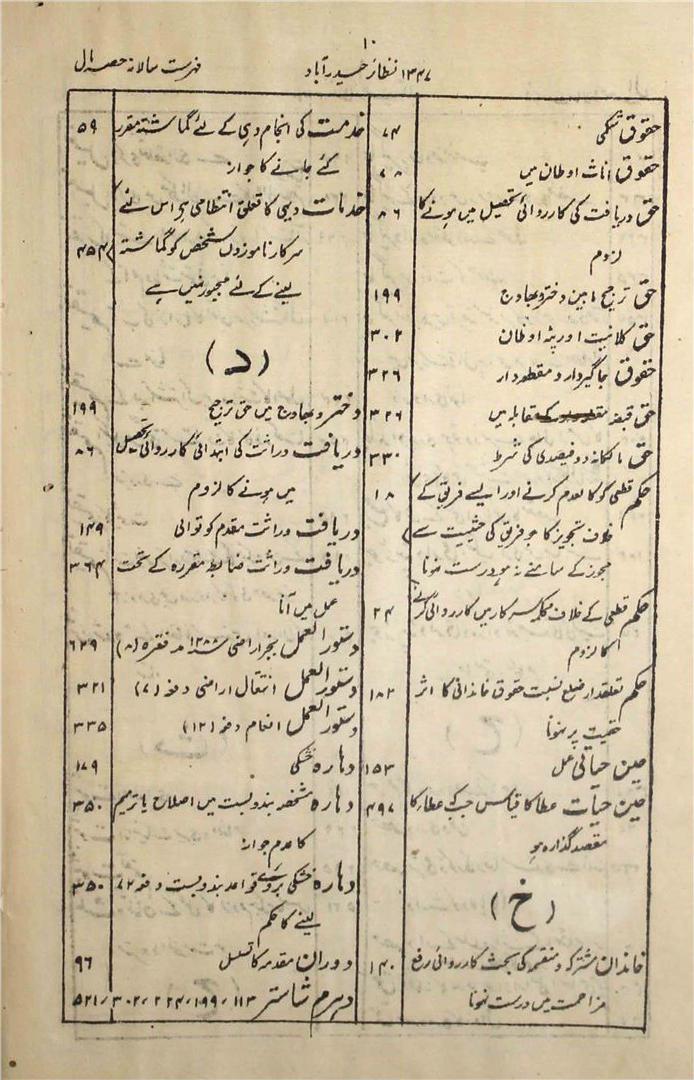 ۱۰
۱۳۴۷ نظائر حیدرآباد
فہرست سالانہ حصہ مال
حقوق شکمی ۷۴
حقوق اناث اوطان میں ۷۸
حق دریافت کی کارروائی تحصیل میں ہونے کا ۸۶
لزوم
حق ترجیح مابین دختر و بھاوج ۱۹۹
حق کلانیت اور پٹہ اوطان ۳۰۲
حقوق جاگیردار و مقطعہ دار ۳۲۶
حق قبضہ کے مقابلہ میں ۳۲۶
حق مالکانہ دو فیصدی کی شرط ۳۳۰
حکم قطعی کو کالعدم کرنے اور ایسے فریق کے ۱۸
خلاف تجویز کا جو فریق کی حیثیت سے
مجوز کے سامنے نہ ہو درست نہونا
حکم قطعی کے خلاف محکمہ سرکار میں کارروائی کرنے ۲۴
کا لزوم
حکم تعلقدار ضلع نسبت حقوق خاندانی کا اثر ۱۸۲
حقیت پر نہونا
حین حیاتی عمل ۱۵۳
حین حیات عطا کا قیاس جب کہ عطاء کا ۴۹۷
مقصد گذارہ ہو
(خ)
خاندان مشترکہ و منقسمہ کی بحث کارروائی رفع ۱۴۰
مزاحمت میں درست نہونا
خدمت کی انجام دہی کے لئے گماشتہ مقرر ۵۹
کئے جانے کا جواز
خدمات دیہی کا تعلق انتظامی ہے اس لئے
سرکار ناموزوں شخص کو گماشتہ ۴۵۴
لینے کے لئے مجبور نہیں ہے
(د)
دختر و بھاوج میں حق ترجیح ۱۹۹
دریافت وراثت کی ابتدائی کارروائی تحصیل ۸۶
میں ہونے کا لزوم
دریافت وراثت مقدم کوتوالی ۱۴۹
دریافت وراثت ضابطہ مقررہ کے تحت ۳۶۴
عمل میں آنا
دستور العمل بنجر اراضی ۱۲۸۸ فقرہ (۸) ۶۲۹
دستور العمل انتقال اراضی دفعہ (۷) ۳۲۱
دستور العمل انعام دفعہ (۱۲) ۳۳۵
دہارہ خشکی ۱۷۹
دہارہ مشخصہ بندوبست میں اصلاح یا ترمیم ۳۵۰
کا عدم جواز
دہارہ خشکی بروئے قواعد بندوبست دفعہ ۷۲ ۳۵۰
لینے کا حکم
دوران مقدمہ کا تسلسل ۹۶
دہرم شاستر ۱۱۳، ۱۹۹، ۲۲۴، ۳۰۲، ۵۲۱